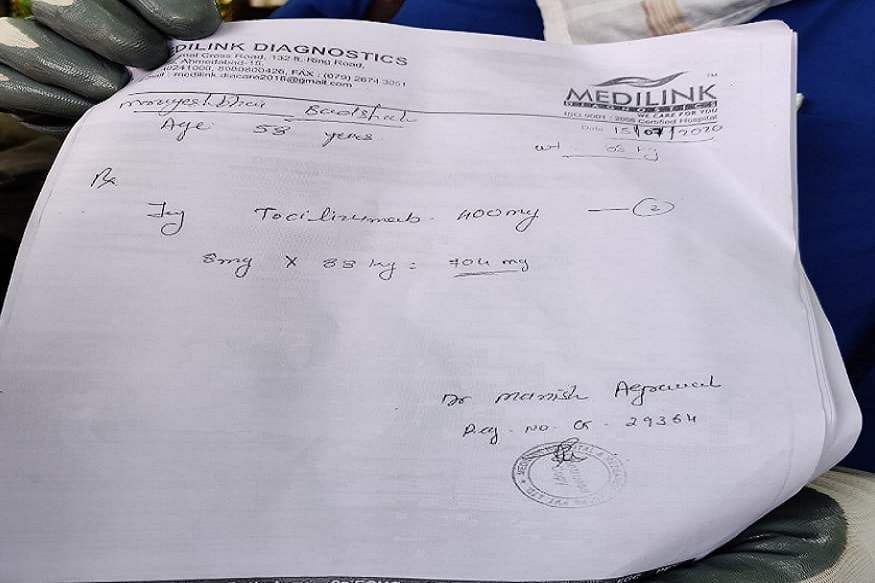 EDILINK DIAGNOSTICS
Cross Road, 132 ft. Ring Road,
Ahmedabad-15.
FAX : (079) 2674 3051
medilink.diacare2016@gmail.com
MEDILINK
DIAGNOSTICS
WE CARE FOR YOU
ISO 9001 : 2008 Certified Hospital
Badshah
Date 15/07/2020
Age 58 years
wt kg
Rx
Inj Tocilizumab. 400mg — 2
8mg X 88 kg = 704 mg
Dr Manish Agrawal
Reg. No. G - 29364